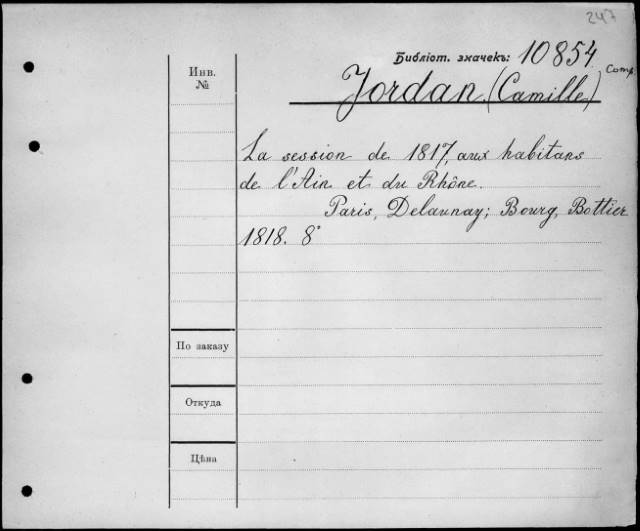 247
Библіот. значекъ: 10854
Инв.
№
Jordan (Camille)
La session de 1817, aux habitans
de l'Ain et du Rhône.
Paris, Delaunay; Bourg, Bottier
1818. 8°
По заказу
Откуда
Цѣна